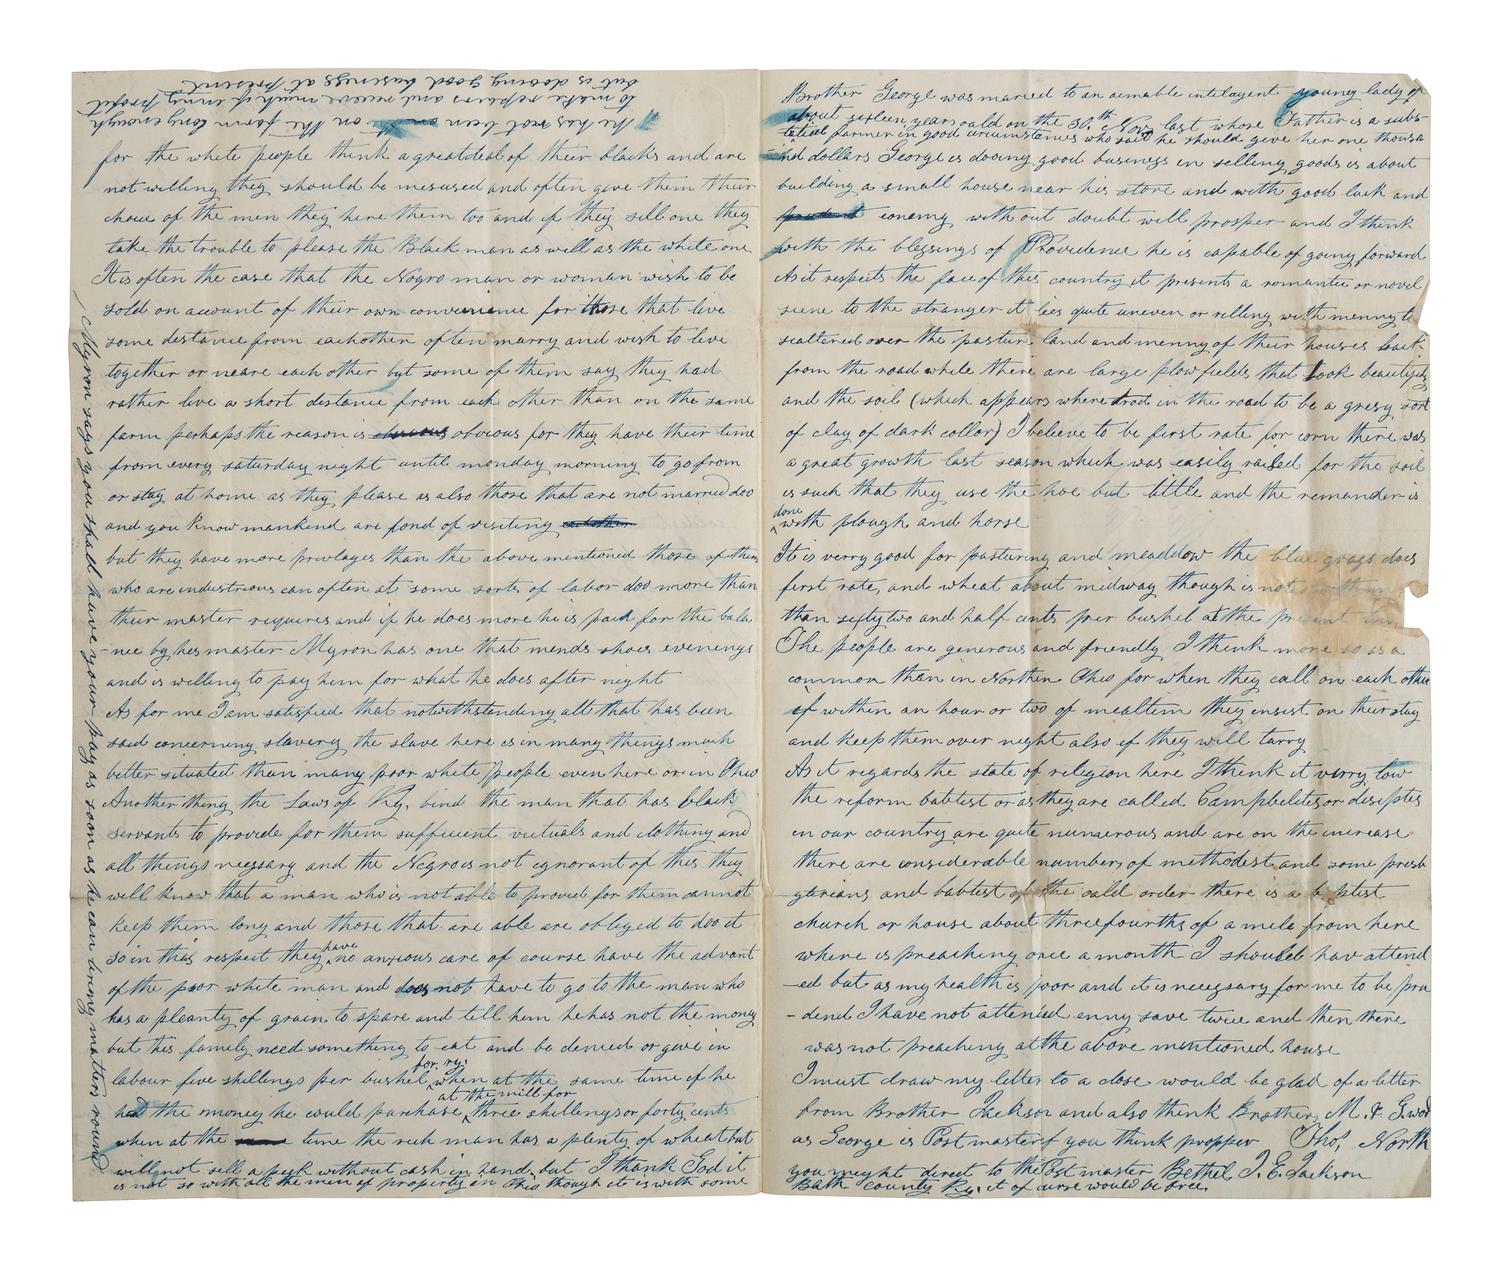 he has not been on the farm long enough
to make repairs and receive much if enny profit
but is dooing good business at present
for the white people think a great deal of their blacks and are
not willing they should be misused and often give them their
choice of the men they here them too and if they sill one they
take the trouble to please the Black man as well as the white one
It is often the case that the Negro man or woman wish to be
sold on account of their own convenience for those that live
some distance from eachother often marry and wish to live
together or neare each other but some of them say they had
rather live a short distance from each other than on the same
farm perhaps the reason is obvious obvious for they have their time
from every saturday night until monday morning to go from
or stay at home as they please as also those that are not married doo
and you know mankind are fond of visiting
but they have more privlages than the above mentioned those of them
who are industrious can often at some sorts of labor doo more than
their master requires and if he does more he is paid for the bala
-nce by his master Myron has one that mends shoes evenings
and is willing to pay him for what he does after night
As for me I am satisfied that notwithstanding all that has been
said concerning slavery the slave here is in many things much
better situated than many poor white people even here or in Ohio
Another thing the Laws of Ky. bind the man that has black
servants to provide for them sufficient victuals and clothing and
all things necessary and the Negro is not ignorant of this they
will know that a man who is not able to provid for them cannot
keep them long and those that are able are obliged to doo it
so in this respect they have no anxious care of course have the advant
of the poor white man and does not have to go to the man who
has a pleanty of grain to spare and tell him he has not the money
but his family need something to eat and be denied or give in
labour five shillings per bushel for ry. when at the same time if he
had the money he could purchase at the mill for three shillings or forty cents
when at the time the rich man has a plenty of wheat but
will not sell a peck without cash in hand, but I thank God it
is not so with all the men of property in Ohio though it is with some
Myron says you shall have your pay as soon as he can bring matters round
Brother George was maried to an aimable intelagent young lady of
about sixteen years oald on the 30th Nov last whose Father is a subs-
tatial farmer in good circumstances who said he should give her one thousa
nd dollars George is dooing good business in selling goods is about
building a small house near his store and with good luck and
prudent conemy with out doubt will prosper and I think
with the blessings of Providence he is capable of going forward
As it respects the face of this country it presents a romantic or novel
scene to the stranger it lies quite uneven or rilling with menny t
scattered over the pasture land and menny of their houses back
from the road while there are large plowfields that look beautiful
and the soil (which appears where trod in the road to be a gresy sort
of clay of dark collor) I believe to be first rate for corn there was
a great growth last season which was easily raised for the soil
is such that they use the hoe but little and the remainder is
done with plough and horse
It is verry good for pasturing and meaddow the blue grass does
first rate, and wheat about midway though is not
than sixty two and half cents per bushel at the present
The people are generous and friendly I think more so as a
common than in Northen Ohio for when they call on each other
if within an hour or two of mealtim they insist on their stay
and keep them over night also if they will tarry
As it regards the state of religion here I think it verry low
the reform babtest or as they are called Campbelites or disiples
in our country are quite numerous and are on the increase
there are considerable numbers of methodest and some presb
yterians and babtest of the oald order there is a baptest
church or house about threefourths of a mile from here
where is preaching once a month I should hav attend
-ed but as my health is poor and it is necessary for me to be pru
-dend I have not attended enny save twice and then there
was not preaching at the above mentioned house
I must draw my letter to a close would be glad of a letter
from Brother Jackson and also think Brother M. & G. wod
as George is Post master if you think propper Thos. North
you might direct to the Post master Bethel J. E. Jackson
Bath county Ky. it of curse would be free.